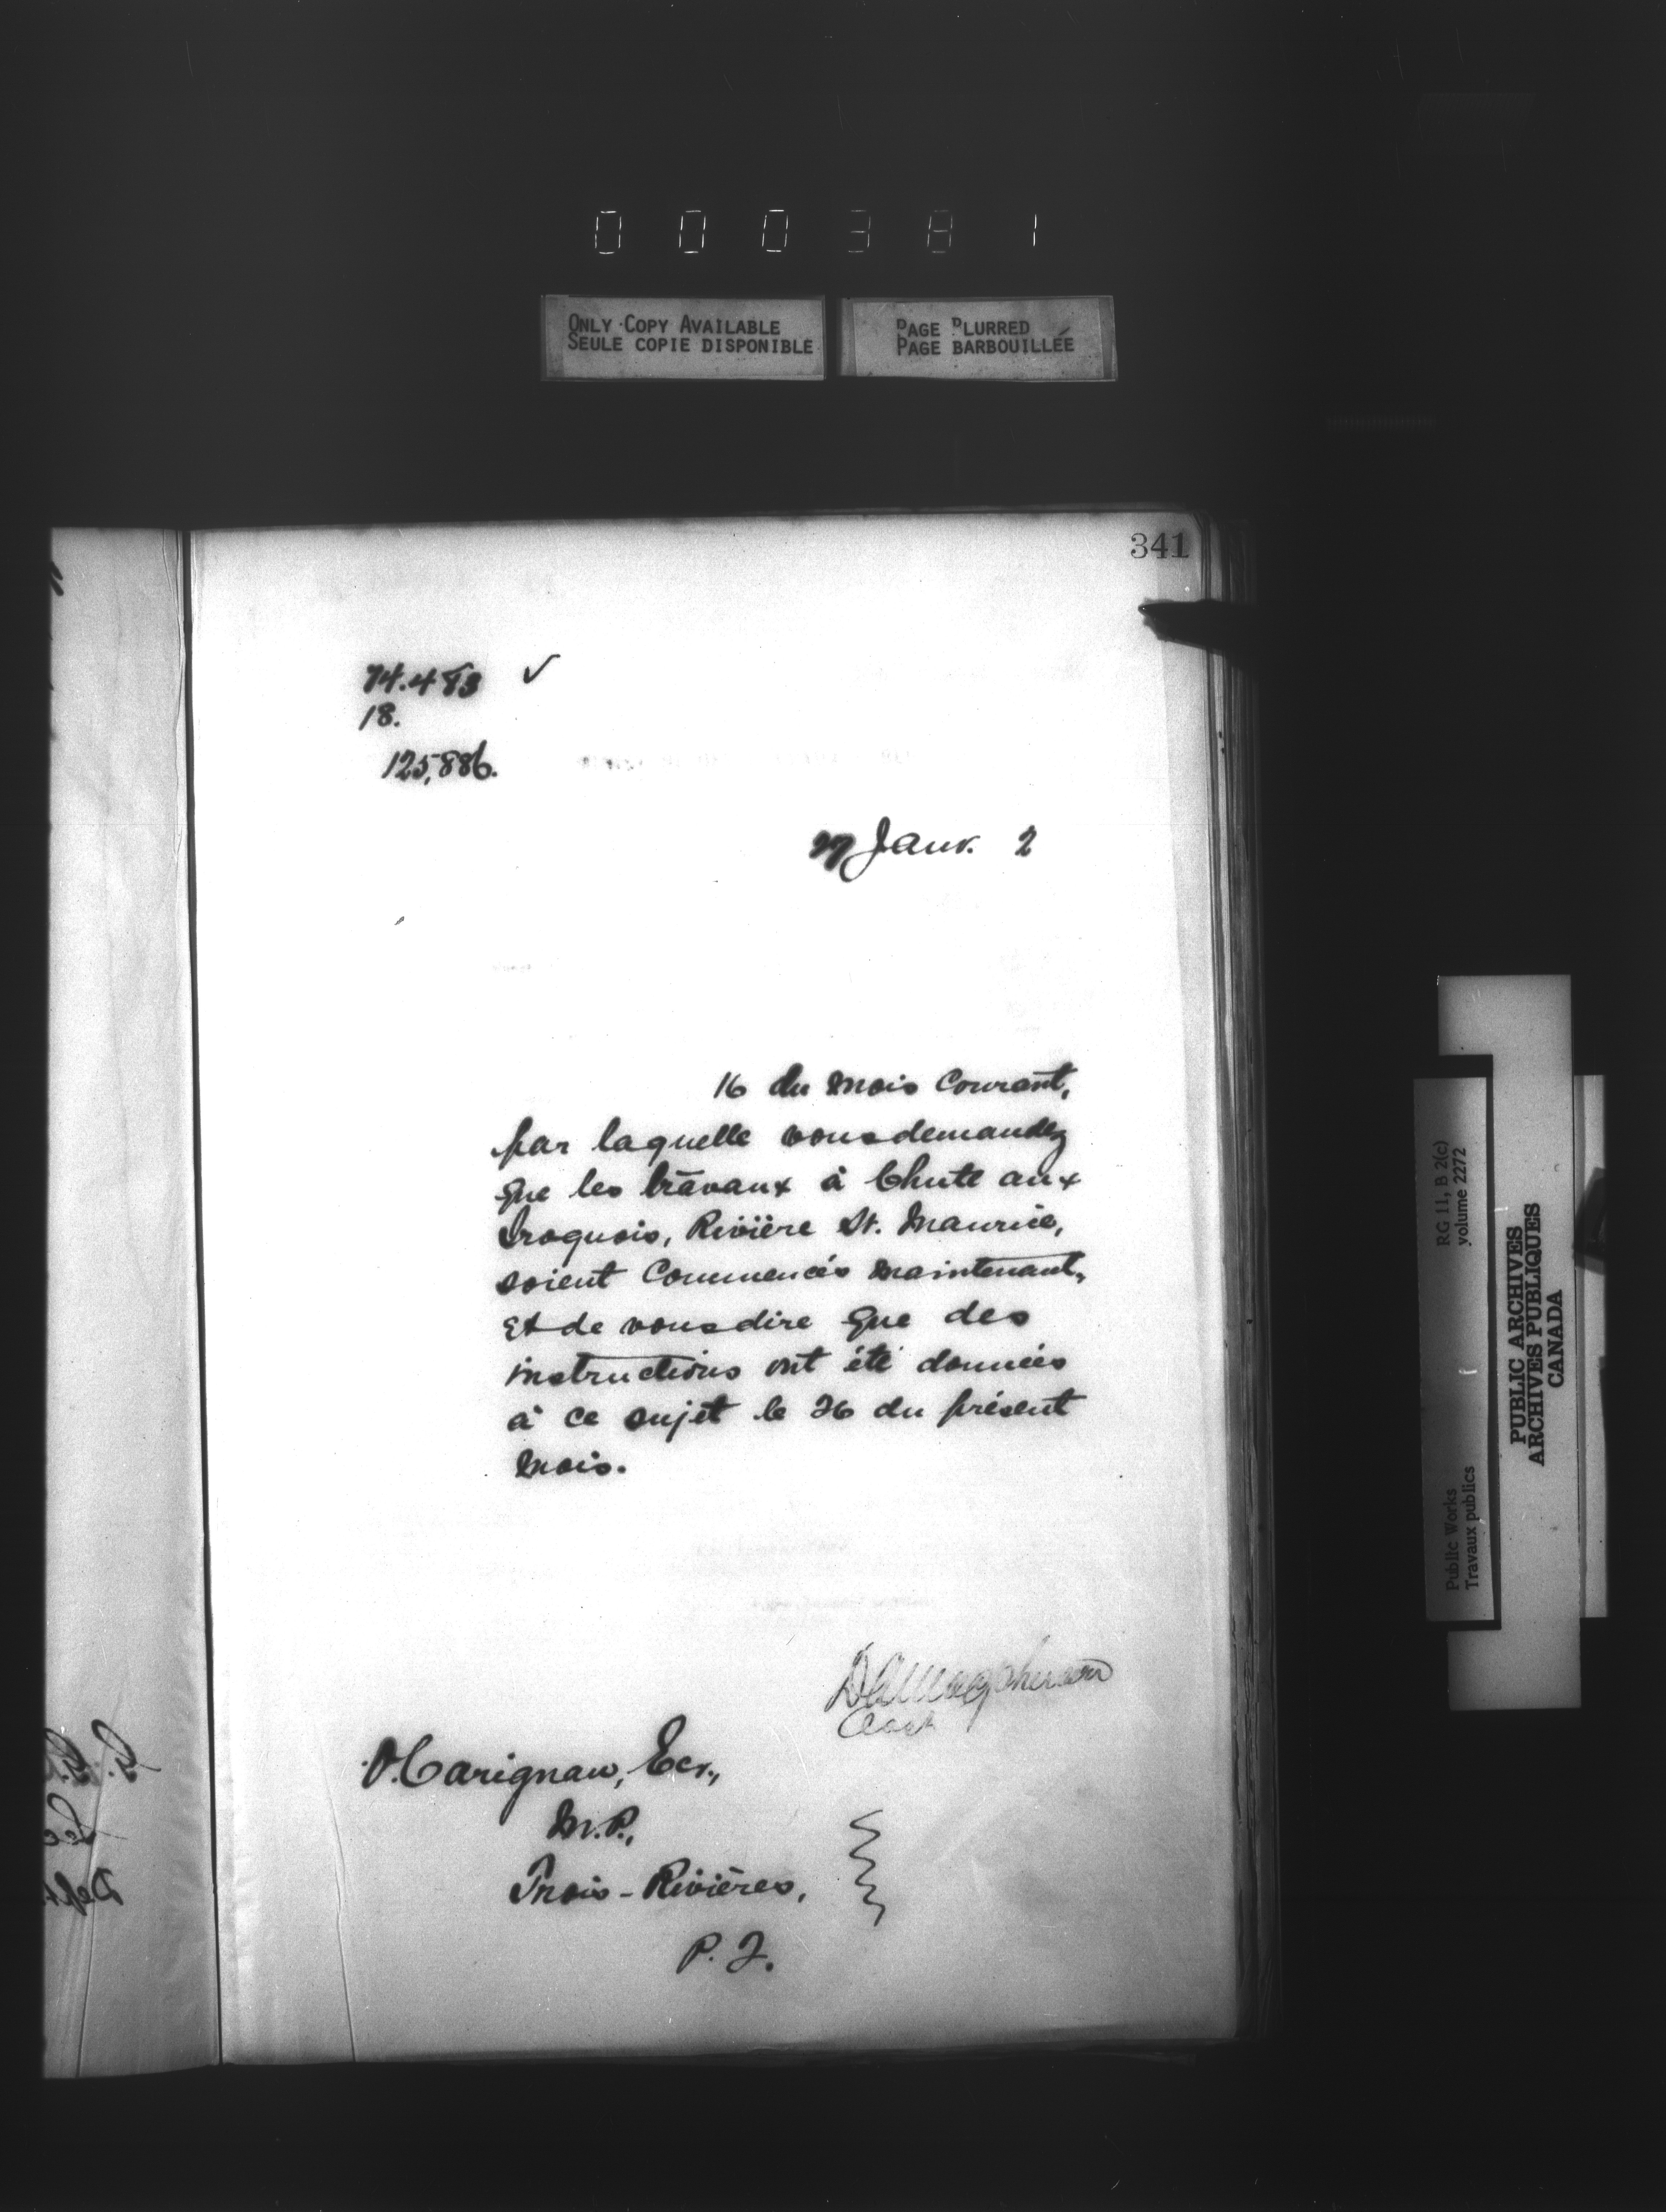 000381
ONLY COPY AVAILABLE
SEULE COPIE DISPONIBLE
PAGE BLURRED
PAGE BARBOUILLÉE
341
74.483 ✓
18.
125,886.
27 Janv. 2
16 du mois courant,
par laquelle vous demandez
que les travaux à Chute aux
Iroquois, Rivière St. Maurice,
soient commencés maintenant,
et de vous dire que des
instructions ont été données
à ce sujet le 26 du présent
mois.
O. Carignan, Ecr.,
M.P.,
Trois-Rivières,
P. Q.
RG 11, B 2(c)
volume 2272
Public Works
Travaux publics
PUBLIC ARCHIVES
ARCHIVES PUBLIQUES
CANADA